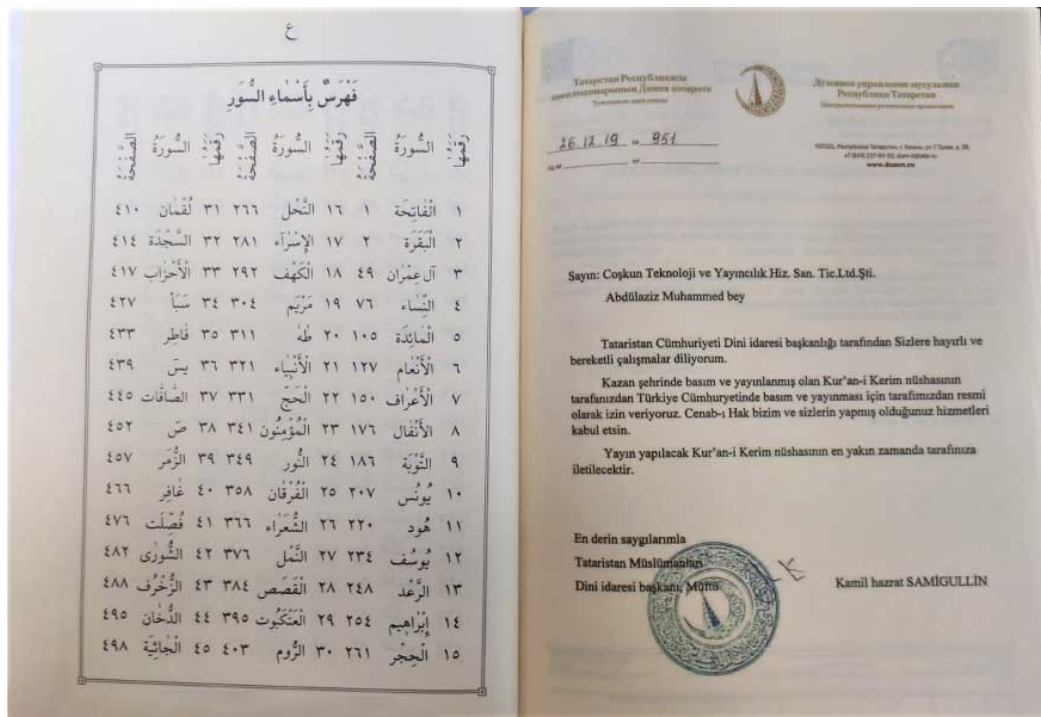 ع
فَهْرَسٌ بِأَسْمَاءِ السُّوَر
رَقْمُهَا السُّورَةُ الصَّفْحَة رَقْمُهَا السُّورَةُ الصَّفْحَة رَقْمُهَا السُّورَةُ الصَّفْحَة
١ الْفَاتِحَة ١ ١٦ النَّحْل ٢٦٦ ٣١ لُقْمَان ٤١٠
٢ الْبَقَرَة ٢ ١٧ الإِسْرَاء ٢٨١ ٣٢ السَّجْدَة ٤١٤
٣ آل عِمْرَان ٤٩ ١٨ الْكَهْف ٢٩٢ ٣٣ الْأَحْزَاب ٤١٧
٤ النِّسَاء ٧٦ ١٩ مَرْيَم ٣٠٤ ٣٤ سَبَأ ٤٢٧
٥ الْمَائِدَة ١٠٥ ٢٠ طه ٣١١ ٣٥ فَاطِر ٤٣٣
٦ الْأَنْعَام ١٢٧ ٢١ الْأَنْبِيَاء ٣٢١ ٣٦ يسَ ٤٣٩
٧ الْأَعْرَاف ١٥٠ ٢٢ الْحَجّ ٣٣١ ٣٧ الصَّافَّات ٤٤٥
٨ الْأَنْفَال ١٧٦ ٢٣ الْمُؤْمِنُون ٣٤١ ٣٨ صَ ٤٥٢
٩ التَّوْبَة ١٨٦ ٢٤ النُّور ٣٤٩ ٣٩ الزُّمَر ٤٥٧
١٠ يُونُس ٢٠٧ ٢٥ الْفُرْقَان ٣٥٨ ٤٠ غَافِر ٤٦٦
١١ هُود ٢٢٠ ٢٦ الشُّعَرَاء ٣٦٦ ٤١ فُصِّلَت ٤٧٦
١٢ يُوسُف ٢٣٤ ٢٧ النَّمْل ٣٧٦ ٤٢ الشُّورَى ٤٨٢
١٣ الرَّعْد ٢٤٨ ٢٨ الْقَصَص ٣٨٤ ٤٣ الزُّخْرُف ٤٨٨
١٤ إِبْرَاهِيم ٢٥٤ ٢٩ الْعَنْكَبُوت ٣٩٥ ٤٤ الدُّخَان ٤٩٥
١٥ الْحِجْر ٢٦١ ٣٠ الرُّوم ٤٠٣ ٤٥ الْجَاثِيَة ٤٩٨
Татарстан Республикасы
мөселманнарының Диния нәзарәте
Духовное управление мусульман
Республики Татарстан
Централизованная религиозная организация
26.12.19 № 951
www.dumrt.ru
Sayın: Coşkun Teknoloji ve Yayıncılık Hiz. San. Tic.Ltd.Şti.
Abdülaziz Muhammed bey
Tataristan Cümhuriyeti Dini idaresi başkanlığı tarafından Sizlere hayırlı ve
bereketli çalışmalar diliyorum.
Kazan şehrinde basım ve yayınlanmış olan Kur'an-i Kerim nüshasının
tarafınızdan Türkiye Cümhuryetinde basım ve yayınması için tarafımızdan resmi
olarak izin veriyoruz. Cenab-ı Hak bizim ve sizlerin yapmış olduğunuz hizmetleri
kabul etsin.
Yayın yapılacak Kur'an-i Kerim nüshasının en yakın zamanda tarafınıza
iletilecektir.
En derin saygılarımla
Tataristan Müslümanları
Dini idaresi başkanı, Müftü
Kamil hazrat SAMİGULLİN